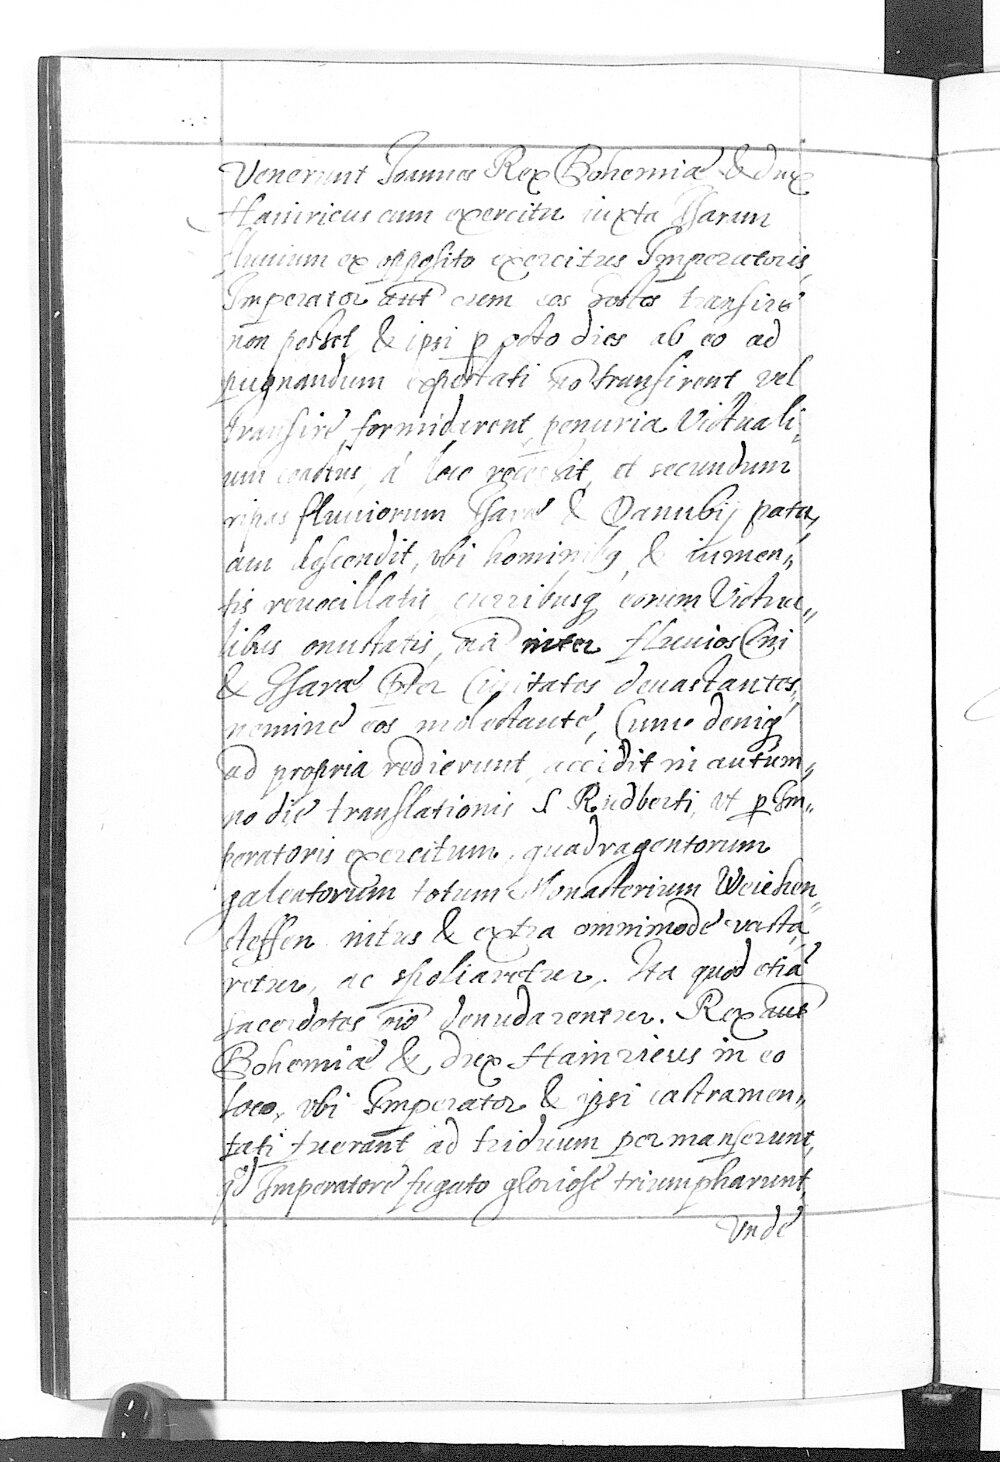 Venerunt Joannes Rex Bohemiæ & dux
Hainricus cum exercitu iuxta Jsarum
fluuium ex opposito exercitus Jmperatoris,
Jmperator aut cum eos hostes transire
non posset, & ipsi p octo dies ab eo ad
pugnandum expectati nō transirent vel
transire formidarent, penuria Victuali„
um coactus, á loco recessit, et secundum
ripas fluuiorum Jsaræ & Danubij
am descendit, vbi hominibq & iumen„
tis reuocillatis, curribusq eorum Victua„
libus onustatis, inter fluuios Œni
& Jsaræ Ciuitates deuastantes,
nemine eos molestante, Cumq deniq
ad propria redierunt, accidit in autum„
no die translationis S Rudberti, vt p Jm„
peratoris exercitum, quadragentorum
galeatorum totum Monasterium Weichen„
steffen intus & extra omnimode vasta„
retur, ac spoliaretur. Ita quod etiā
sacerdotes denudarentur. Rex aut
Bohemiæ & dux Hainricus in eo
loco, vbi Jmperator & ipsi castramen„
tati fuerant ad triduum permanserunt,
qd Jmperatore fugato gloriose triumpharunt,
Vnde